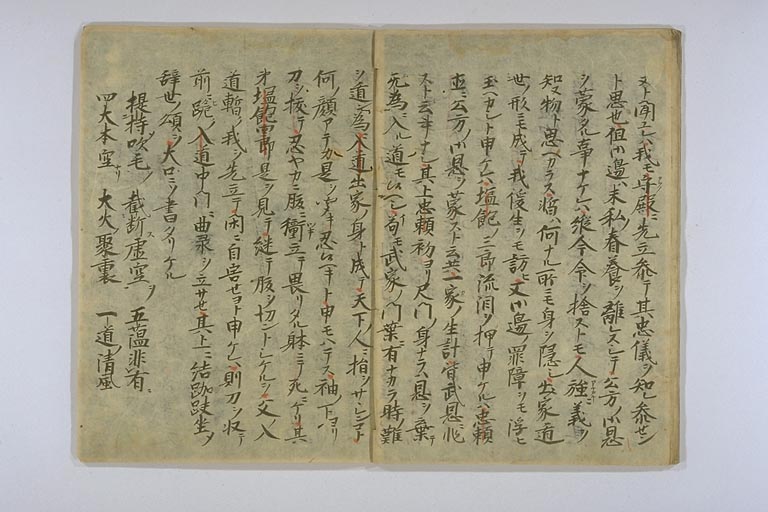 又ト聞エシハ我モ守殿ニ先立奉テ其忠儀ヲ知レ奉セン
ト思也但小邊ハ末私ノ眷養ヲ離レスシテ公方ノ御恩
ヲ蒙タル事ナケレハ縦今命ヲ捨ストモ人強義ヲ
知ヌ物トハ思ヘカラス然ハ何ナル所ニモ身ヲ隠シ出家遁
世ノ形ニモ成テ我後生ヲモ訪ヒ又小邊ノ罪障ヲモ浮セ
玉ヘカシト申ケレハ塩飽ノ三郎流泪ヲ押テ申ケルハ忠頼
直ニ公方ノ御恩ヲ蒙スト云共一家ノ生計皆武恩ニ非
スト云事ナシ其上忠頼初ヨリ尺門ノ身ナラハ恩ヲ棄テ
无為ニ入ル道モ候ヘシ苟モ武家ノ門葉ニ有ナカラ時ノ難
ヲ遁ン為ニ入道出家ノ身ト成テ天下ノ人ニ指ヲサレンコト
何ノ顔アテカ是ヲ忍候ヘキト申モハテス袖ノ下ヨリ
刀ヲ抜テ忍ヤカニ腹ニ衝立テ畏リタル体ニテ死ニケリ其
弟塩飽四郎是ヲ見テ継テ腹ヲ切ントシケルヲ父ノ入
道暫ク我ヲ先立テ閑ニ自害セヨト申ケレハ則刀ヲ収テ
前ニ跪ク入道中門ニ曲彔ヲ立サセ其上ニ結跏趺坐シテ
辞世ノ頌ヲ大口ニソ書タリケル
提持吹毛ヲ 截断虚空ヲ 五蘊非有ニ
四大本空リ 大火聚裏 一道ノ清風